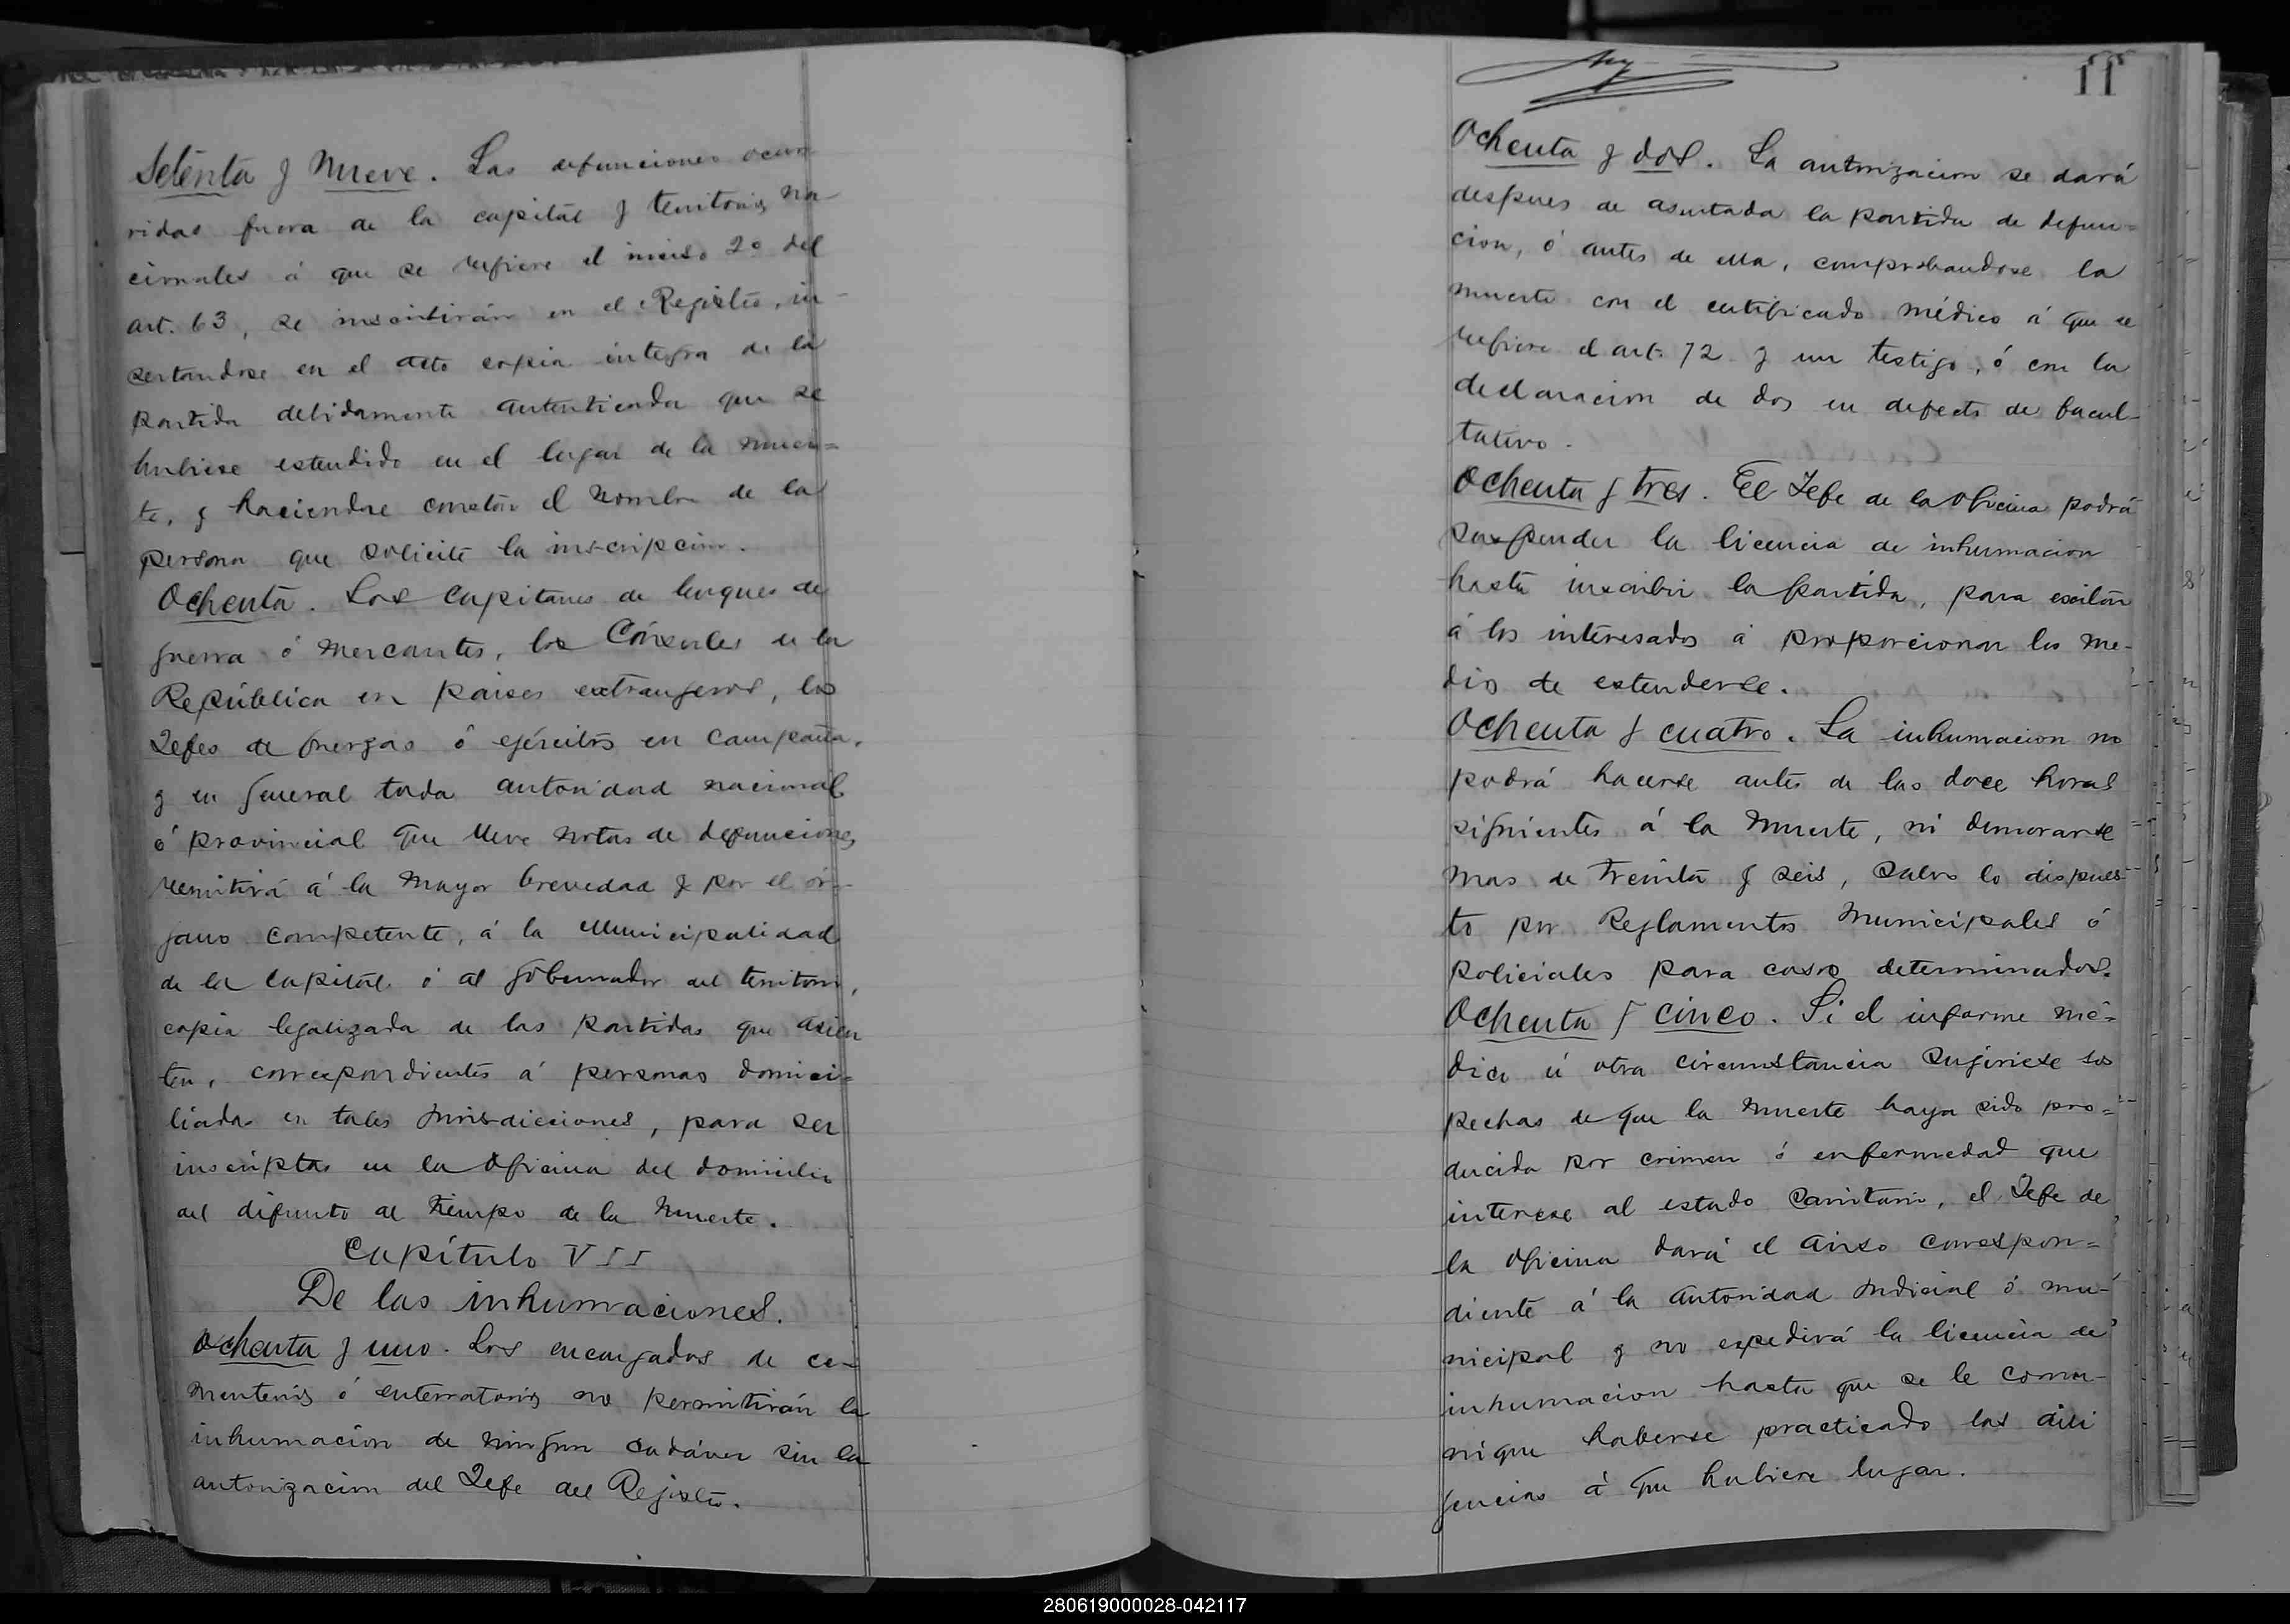 Setenta y nueve. Las defunciones ocur-
ridas fuera de la capital y territorios na-
cionales á que se refiere el inciso 2º del
art. 63, se inscribirán en el Registro, in-
sertandose en el acto copia íntegra de la
partida debidamente autenticada que se
hubiese estendido en el lugar de la muer=
te, y haciendose constar el nombre de la
persona que solicite la inscripcion.
Ochenta. Los capitanes de buques de
guerra ó mercantes, los Cónsules de la
República en paises extrangeros, los
Jefes de fuerzas ó ejércitos en campaña,
y en general toda autoridad nacional
ó provincial que lleve notas de defunciones
remitirá á la mayor brevedad y por el ór-
gano competente, á la Municipalidad
de la Capital ó al gobernador del territorio,
copia legalizada de las partidas que asien
ten, correspondientes á personas domici=
liadas en tales jurisdicciones, para ser
inscriptas en la oficina del domicilio
del difunto al tiempo de la muerte.
Capítulo VII
De las inhumaciones.
Ochenta y uno. Los encargados de ce-
menterios ó enterratorios no permitirán la
inhumación de ningun cadáver sin la
autorizacion del Jefe del Registro.
11
Ochenta y dos. La autorizacion se dará
despues de asentada la partida de defun=
cion, ó antes de ella, comprobandose la
muerte con el certificado médico á que se
refiere el art. 72 y un testigo, ó con la
declaracion de dos en defecto de facul-
tativo.
Ochenta y tres. El Jefe de la oficina podrá
suspender la licencia de inhumacion
hasta inscribir la partida, para excitar
á los interesados á proporcionar los me-
dios de estenderse.
Ochenta y cuatro. La inhumacion no
podrá hacerse antes de las doce horas
siguientes á la muerte, ni demorarse
mas de treinta y seis, salvo lo dispues-
to por Reglamentos municipales ó
policiales para casos determinados.
Ochenta y cinco. Si el informe mé=
dico ú otra circunstancia sugiriese sos
pechas de que la muerte haya sido pro=
ducida por crimen ó enfermedad que
interese al estado sanitario, el Jefe de
la oficina dará el aviso correspon=
diente á la autoridad judicial ó mu-
nicipal y no expedirá la licencia de
inhumacion hasta que se le comu-
nique haberse practicado las dili
gencias á que hubiere lugar.
280619000028-042117